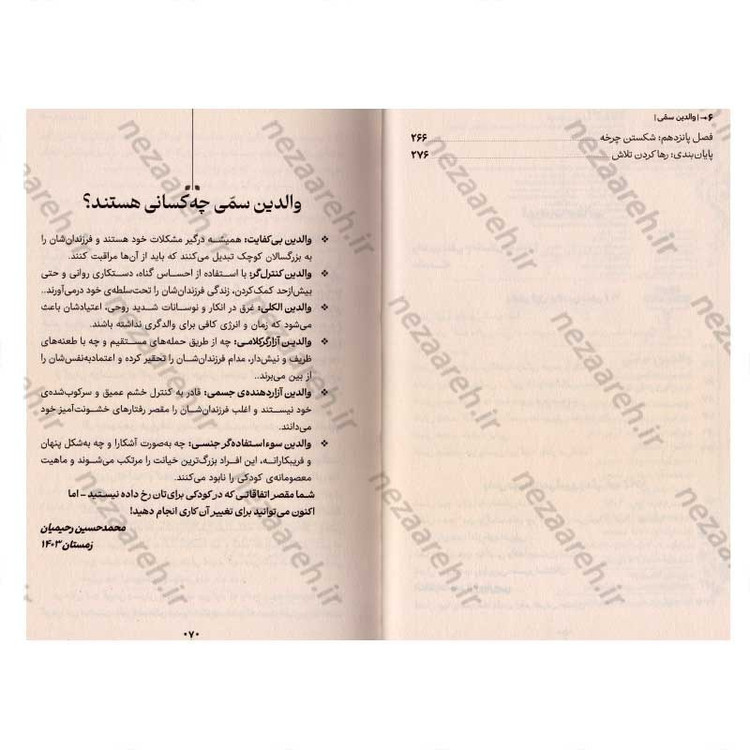 ۶ •→ | والدین سمّی |
فصل پانزدهم: شکستن چرخه ۲۶۶
پایان‌بندی: رها کردن تلاش ۲۷۶
والدین سمّی چه کسانی هستند؟
❖ والدین بی‌کفایت: همیشه درگیر مشکلات خود هستند و فرزندان‌شان را
به بزرگسالان کوچک تبدیل می‌کنند که باید از آن‌ها مراقبت کنند.
❖ والدین کنترل‌گر: با استفاده از احساس گناه، دستکاری روانی و حتی
بیش‌ازحد کمک‌کردن، زندگی فرزندان‌شان را تحت‌سلطه‌ی خود درمی‌آورند..
❖ والدین الکلی: غرق در انکار و نوسانات شدید روحی، اعتیادشان باعث
می‌شود که زمان و انرژی کافی برای والدگری نداشته باشند.
❖ والدین آزارگر کلامی: چه از طریق حمله‌های مستقیم و چه با طعنه‌های
ظریف و نیش‌دار، مدام فرزندان‌شان را تحقیر کرده و اعتمادبه‌نفس‌شان را
از بین می‌برند..
❖ والدین آزاردهنده‌ی جسمی: قادر به کنترل خشم عمیق و سرکوب‌شده‌ی
خود نیستند و اغلب فرزندان‌شان را مقصر رفتارهای خشونت‌آمیز خود
می‌دانند.
❖ والدین سوءاستفاده‌گر جنسی: چه به‌صورت آشکارا و چه به‌شکل پنهان
و فریبکارانه، این افراد بزرگ‌ترین خیانت را مرتکب می‌شوند و ماهیت
معصومانه‌ی کودکی را نابود می‌کنند.
شما مقصر اتفاقاتی که در کودکی برای‌تان رخ داده نیستید – اما
اکنون می‌توانید برای تغییر آن کاری انجام دهید!
محمدحسین رحیمیان
زمستان ۱۴۰۳
•۷•
nezaareh.ir